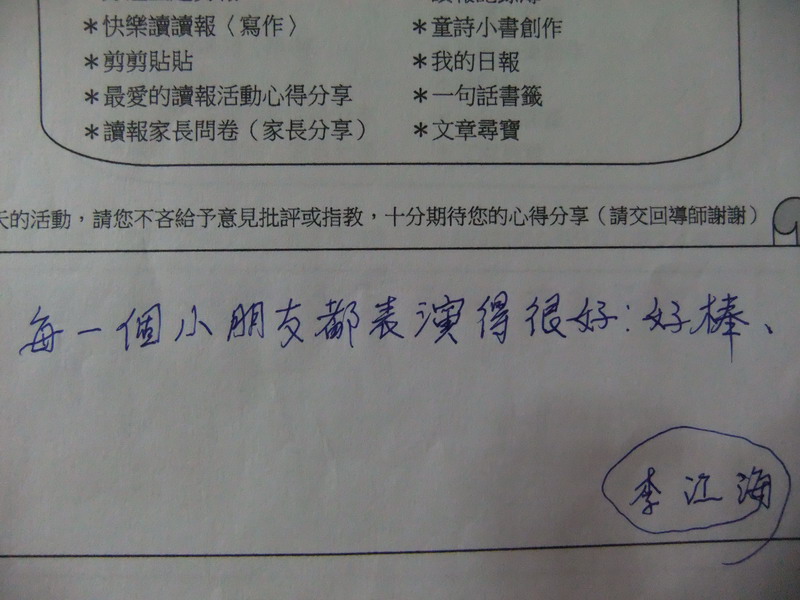 ＊快樂讀讀報〈寫作〉 ＊童詩小書創作
＊剪剪貼貼 ＊我的日報
＊最愛的讀報活動心得分享 ＊一句話書籤
＊讀報家長問卷（家長分享） ＊文章尋寶
天的活動，請您不吝給予意見批評或指教，十分期待您的心得分享（請交回導師謝謝）
每一個小朋友都表演得很好：好棒、
李 海